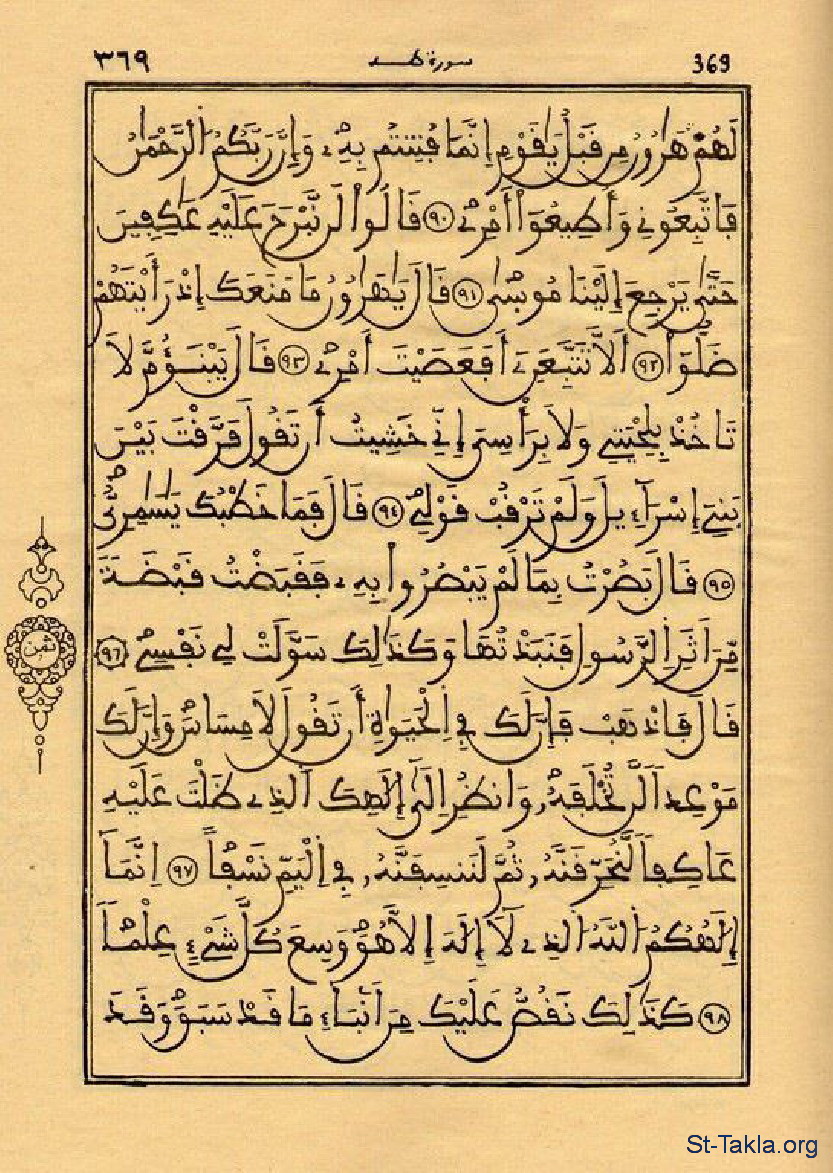 ٣٦٩ سورة طه 369
لَهُمْ هَٰرُونُ مِن قَبْلُ يَٰقَوْمِ إِنَّمَا فُتِنتُم بِهِۦ وَإِنَّ رَبَّكُمُ الرَّحْمَٰنُ
فَاتَّبِعُونِے وَأَطِيعُوٓاْ أَمْرِے ٩٠ قَالُواْ لَن نَّبْرَحَ عَلَيْهِ عَٰكِفِينَ
حَتَّىٰ يَرْجِعَ إِلَيْنَا مُوسَىٰ ٩١ قَالَ يَٰهَٰرُونُ مَا مَنَعَكَ إِذْ رَأَيْتَهُمْ
ضَلُّوٓاْ ٩٢ أَلَّا تَتَّبِعَنِۦ أَفَعَصَيْتَ أَمْرِے ٩٣ قَالَ يَبْنَؤُمَّ لَا
تَاخُذْ بِلِحْيَتِے وَلَا بِرَأْسِيَ إِنِّے خَشِيتُ أَن تَقُولَ فَرَّقْتَ بَيْنَ
بَنِےٓ إِسْرَآءِيلَ وَلَمْ تَرْقُبْ قَوْلِے ٩٤ قَالَ فَمَا خَطْبُكَ يَٰسَٰمِرِيُّ
٩٥ قَالَ بَصُرْتُ بِمَا لَمْ يَبْصُرُواْ بِهِۦ فَقَبَضْتُ قَبْضَةً
مِّنْ أَثَرِ الرَّسُولِ فَنَبَذْتُهَا وَكَذَٰلِكَ سَوَّلَتْ لِے نَفْسِے ٩٦
قَالَ فَاذْهَبْ فَإِنَّ لَكَ فِے الْحَيَوٰةِ أَن تَقُولَ لَا مِسَاسَ وَإِنَّ لَكَ
مَوْعِداً لَّن تُخْلَفَهُۥ وَانظُرِ اِلَىٰٓ إِلَٰهِكَ الَّذِے ظَلْتَ عَلَيْهِ
عَاكِفاً لَّنُحَرِّقَنَّهُۥ ثُمَّ لَنَنسِفَنَّهُۥ فِے اِلْيَمِّ نَسْفاً ٩٧ إِنَّمَآ
إِلَٰهُكُمُ اللَّهُ الَّذِے لَآ إِلَٰهَ إِلَّا هُوَ وَسِعَ كُلَّ شَےْءٍ عِلْماً
٩٨ كَذَٰلِكَ نَقُصُّ عَلَيْكَ مِنْ أَنۢبَآءِ مَا قَدْ سَبَقَ وَقَدَ
ثمن
St-Takla.org